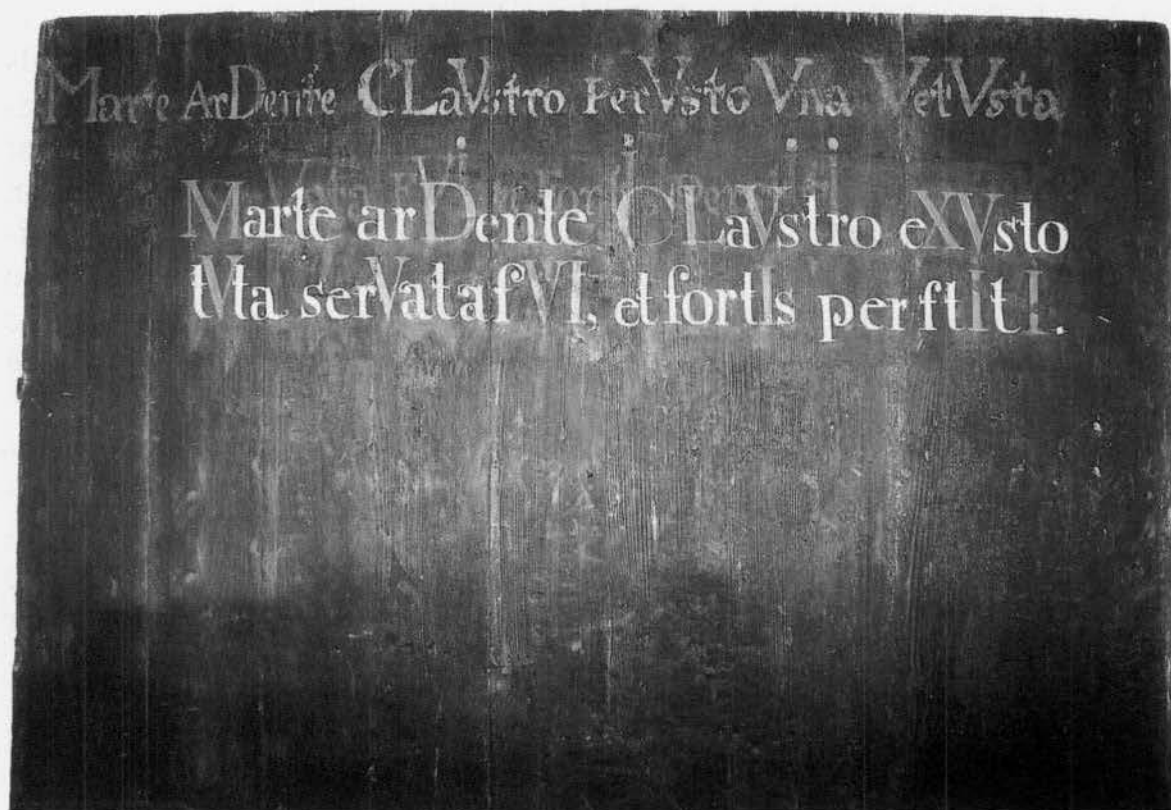 Marte ArDente CLaVstro PerVsto Vna VetVsta
Marte arDente CLaVstro eXVsto
tVta serVata fVI, et fortIs perstItI.